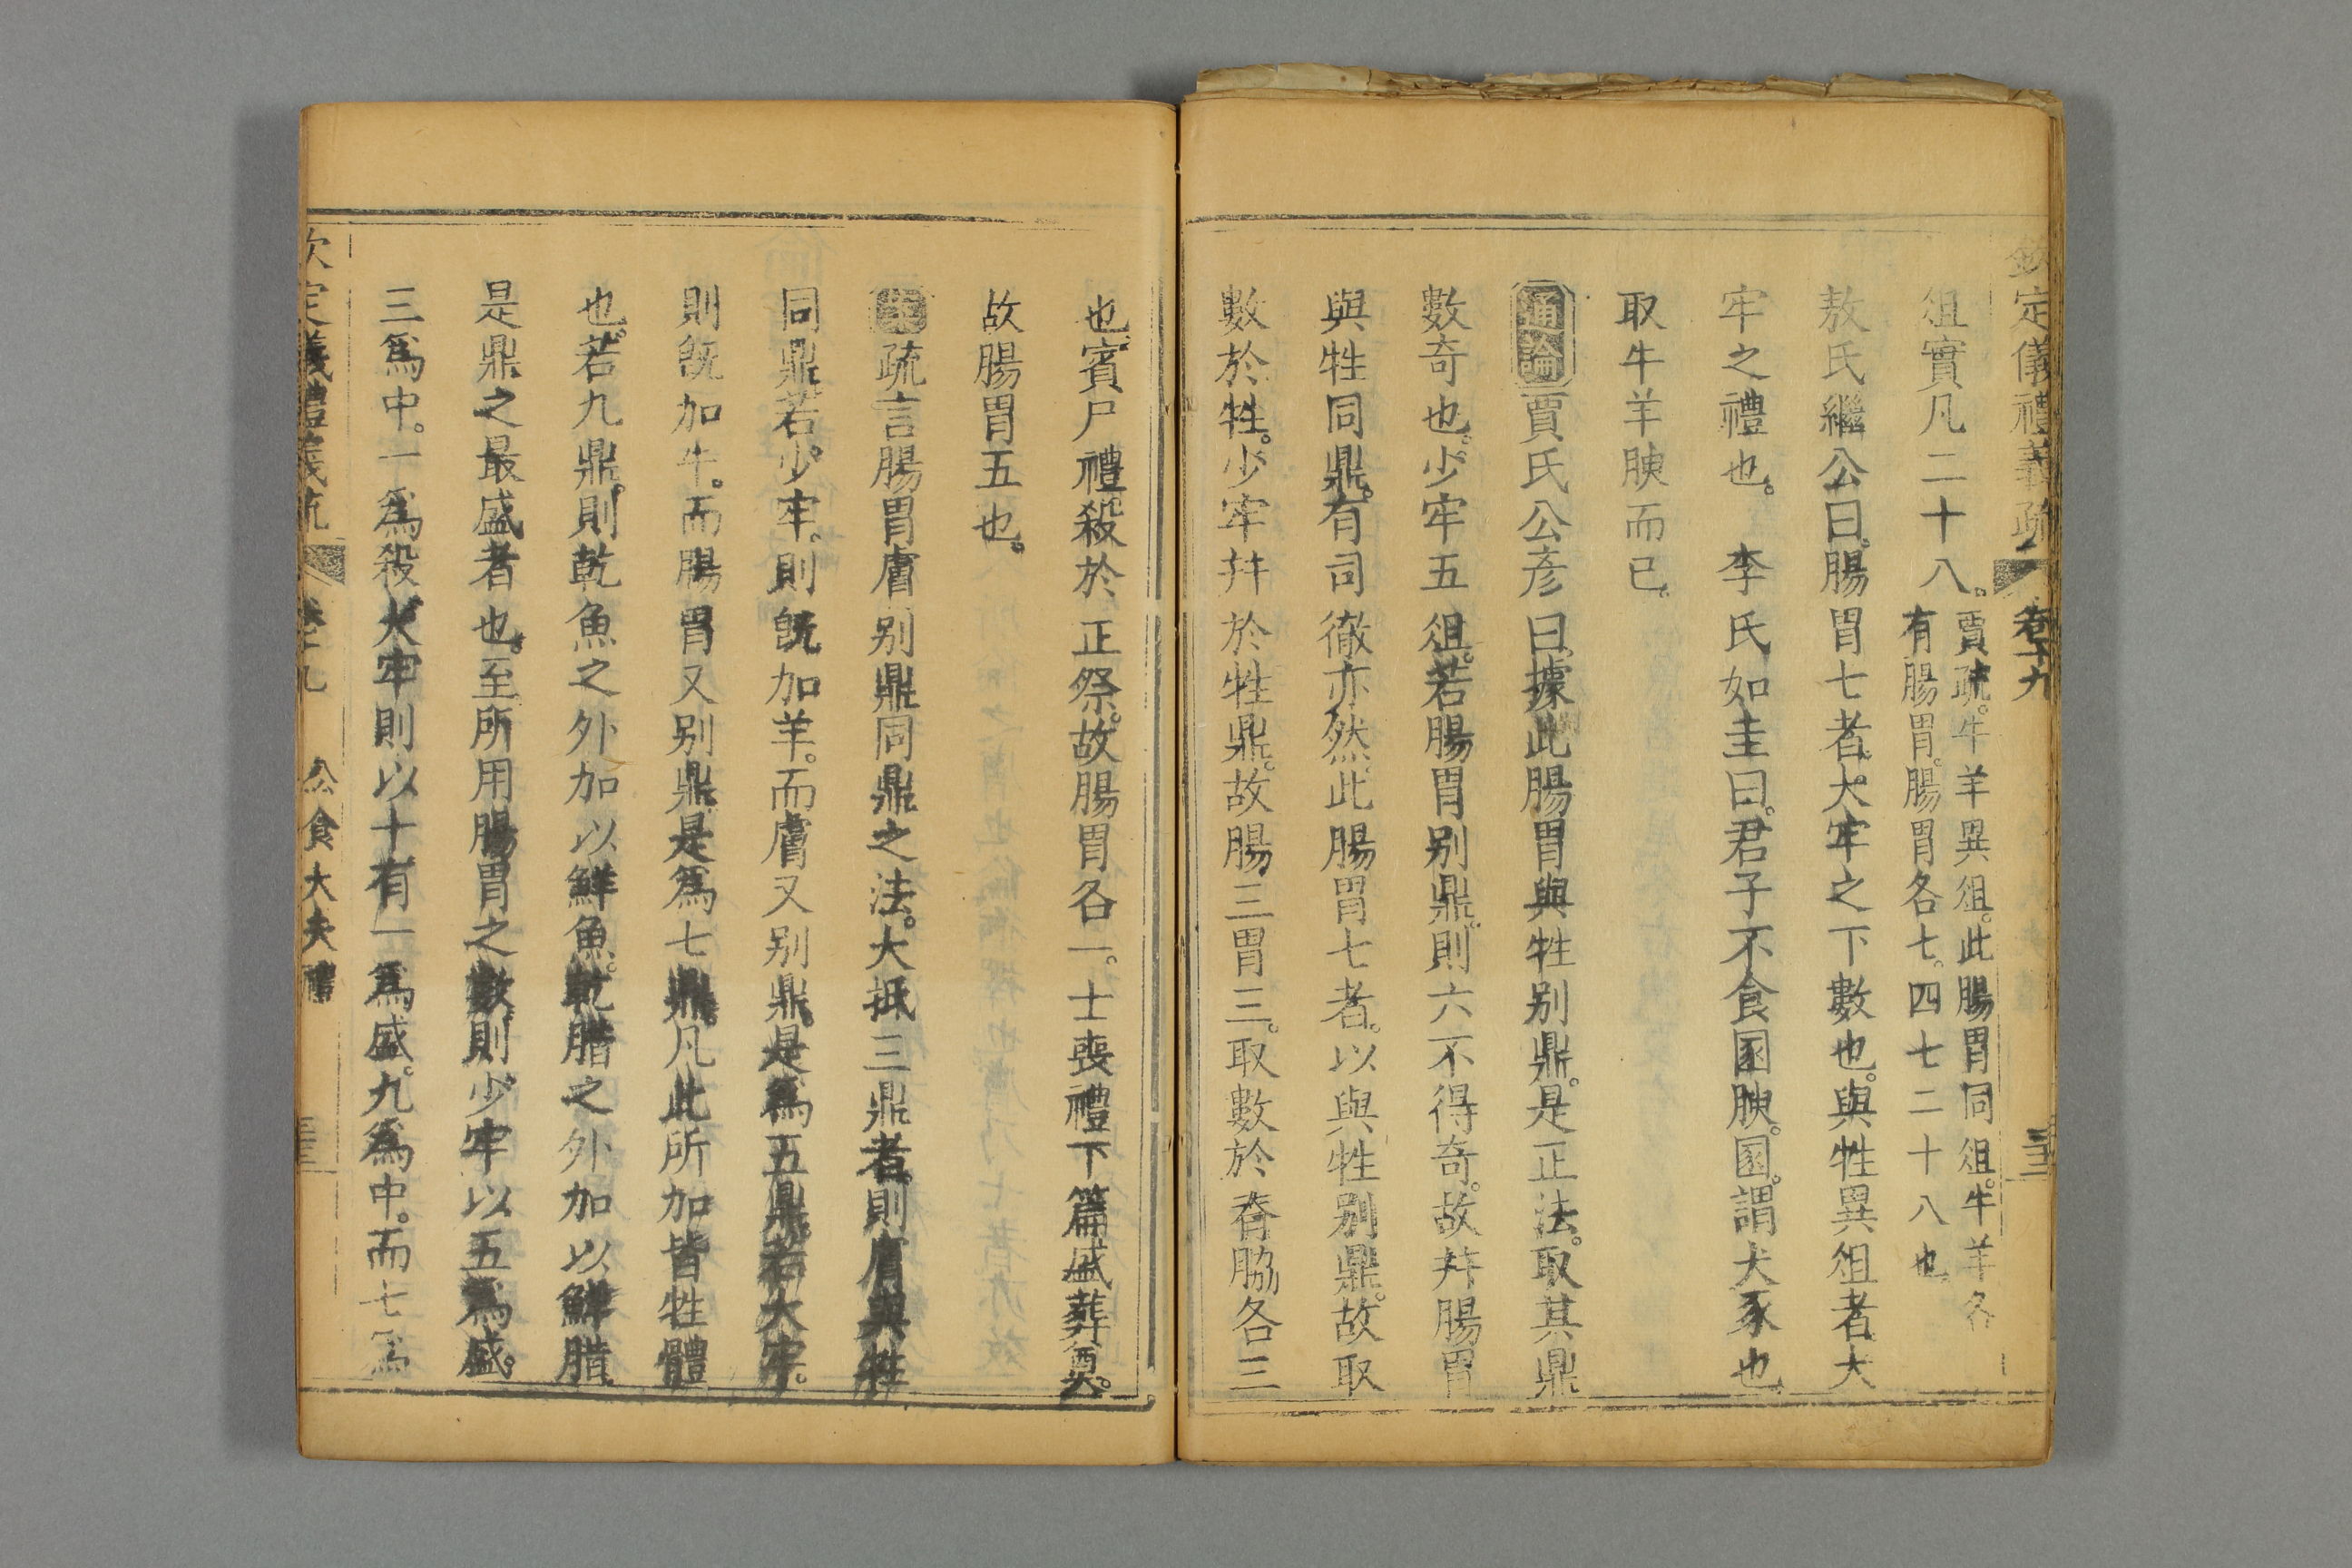 欽定儀禮義疏 卷十九
俎實凡二十八。賈疏。牛羊異俎。此腸胃同俎。牛羊各
有腸胃。腸胃各七。四七二十八也
敖氏繼公曰。腸胃七者。大牢之下數也。與牲異俎者大
牢之禮也。 李氏如圭曰。君子不食圂腴。圂。謂犬豕也
取牛羊腴而已。
通論賈氏公彥曰。據此腸胃與牲别鼎。是正法。取其鼎
數奇也。少牢五俎。若腸胃别鼎。則六不得奇。故幷腸胃
與牲同鼎。有司徹亦然。此腸胃七者。以與牲别鼎。故取
數於牲。少牢幷於牲鼎。故腸三胃三。取數於脊脇各三
也。賓尸禮。殺於正祭。故腸胃各一。士喪禮下篇盛葬奠。
故腸胃五也。
疏言腸胃膚别鼎同鼎之法。大抵三鼎者。則膚與牲
同鼎。若少牢。則旣加羊。而膚又别鼎。是爲五鼎。若大牢。
則旣加牛。而腸胃又别鼎。是爲七鼎。凡此所加皆牲體
也。若九鼎。則乾魚之外加以鮮魚。乾腊之外加以鮮腊
是鼎之最盛者也。至所用腸胃之數。則少牢以五爲盛。
三爲中。一爲殺。大牢則以十有一爲盛。九爲中。而七爲
欽定儀禮義疏 卷十九 公食大夫禮